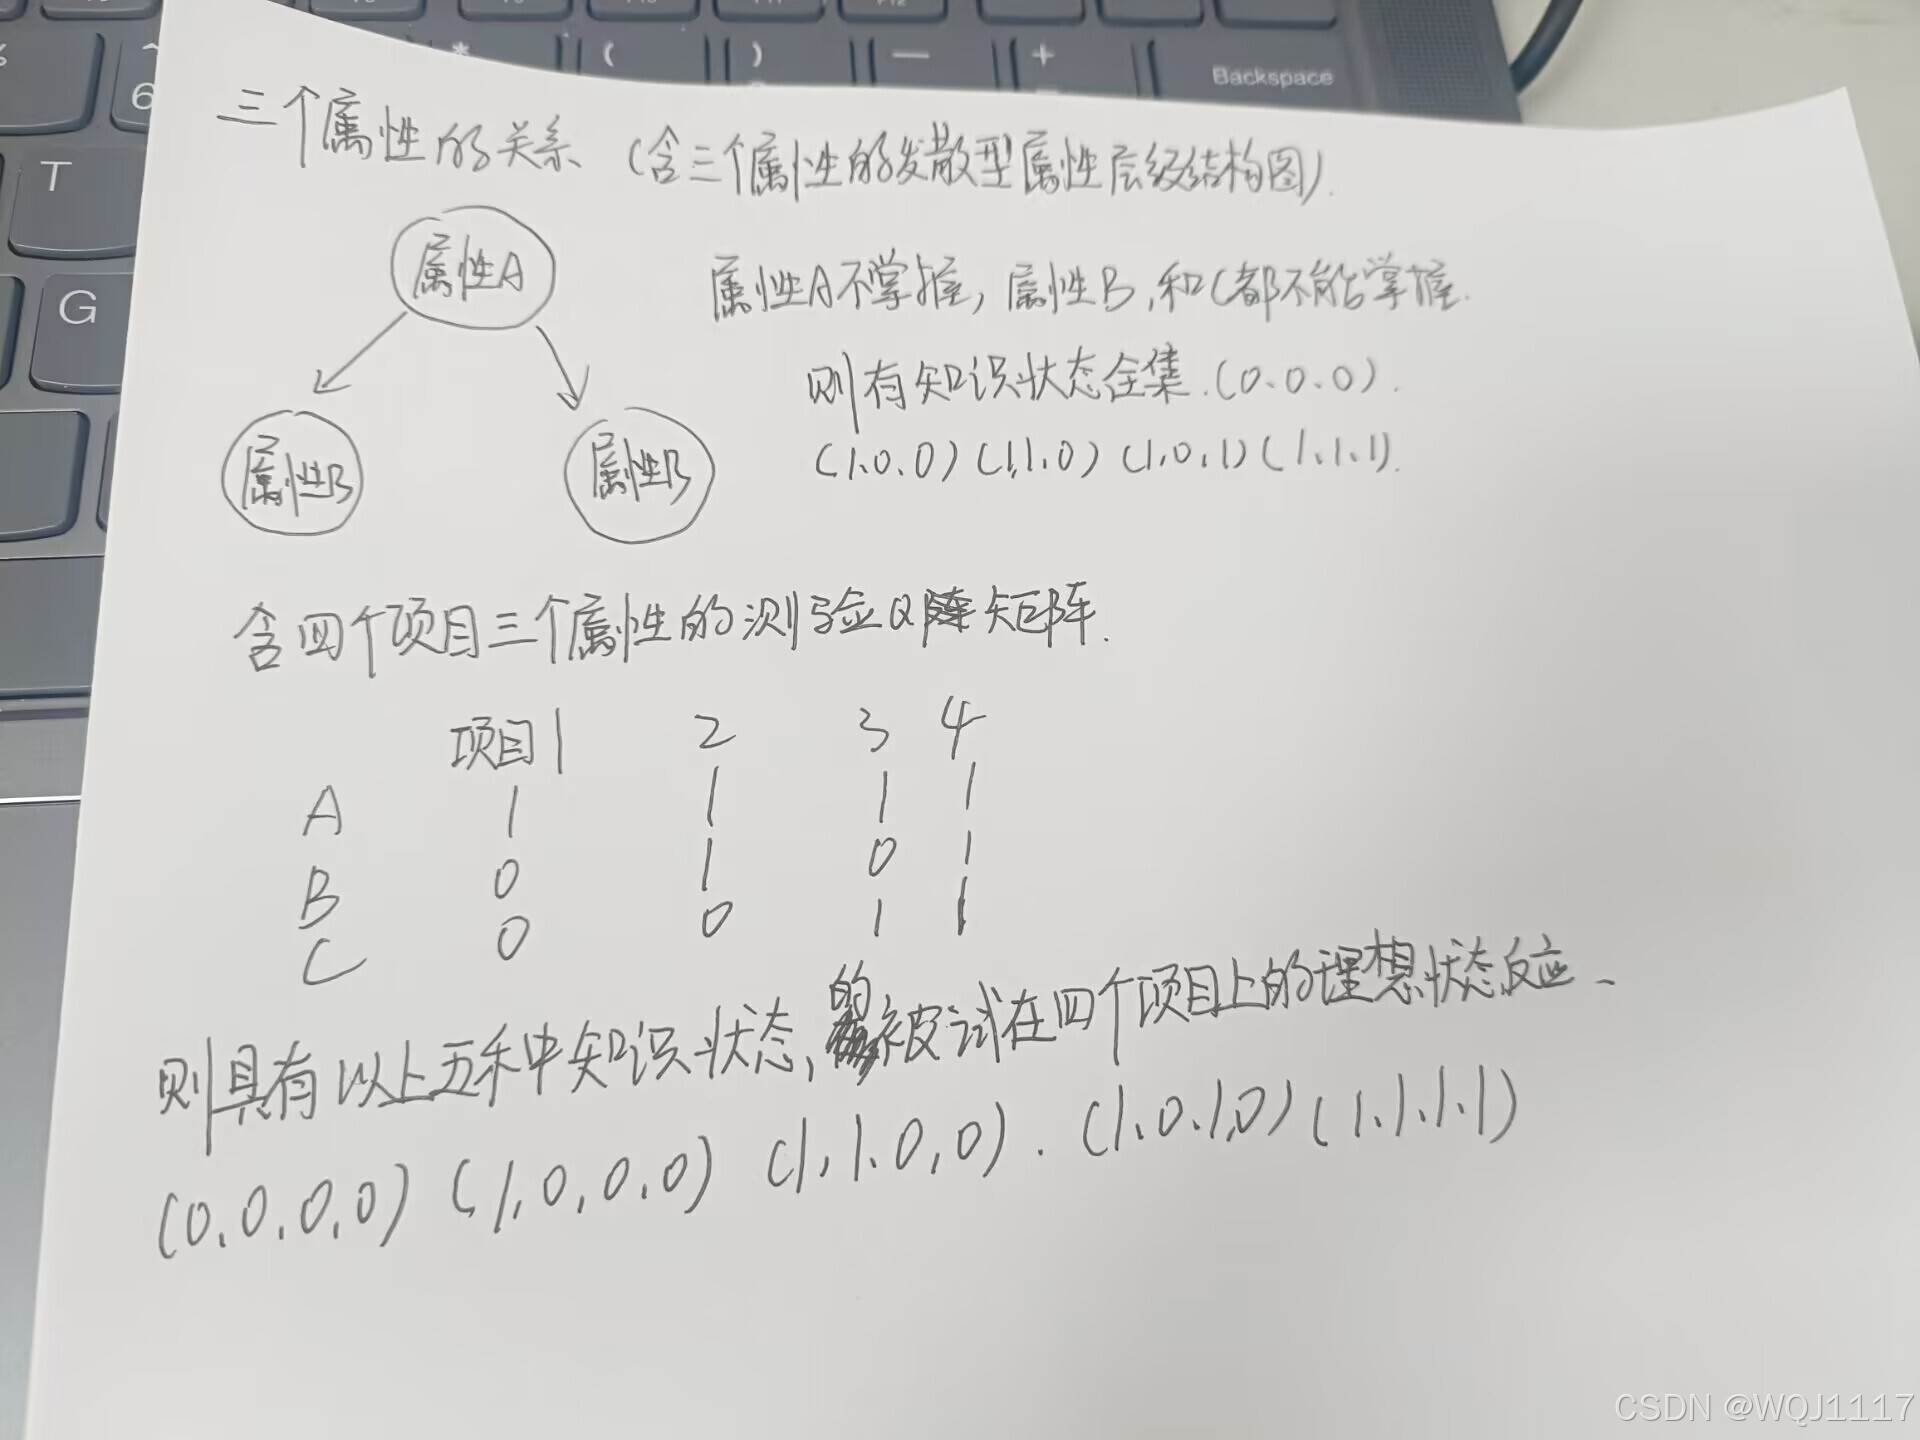 ( ) — +
Backspace
6
T
G
三个属性的关系 (含三个属性的发散型属性层级结构图).
属性A
属性A不掌握, 属性B,和C都不能掌握.
则有知识状态全集.(0.0.0).
属性B 属性B
(1.0.0) (1,1.0) (1.0.1) (1.1.1).
含四个项目三个属性的测验Q矩阵.
项目1 2 3 4
A 1 1 1 1
B 0 1 0 1
C 0 0 1 1
则具有以上五种知识状态,的被试在四个项目上的理想状态反应.
(0.0.0.0) (1,0,0.0) (1,1.0,0). (1.0.1,0) (1.1.1.1)
CSDN @WQJ1117